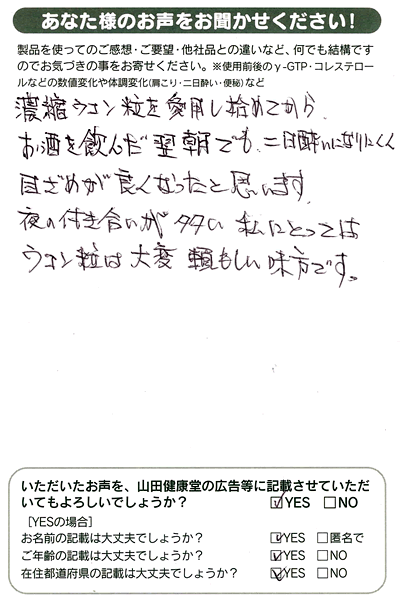 あなた様のお声をお聞かせください！
製品を使ってのご感想・ご要望・他社品との違いなど、何でも結構です
のでお気づきの事をお寄せください。※使用前後のγ-GTP・コレステロー
ルなどの数値変化や体調変化(肩こり・二日酔い・便秘)など
濃縮ウコン粒を愛用し始めてから、
お酒を飲んだ翌朝でも、二日酔いになりにくく
目ざめが良くなったと思います。
夜の付き合いが多い私にとっては
ウコン粒は大変頼もしい味方です。
いただいたお声を、山田健康堂の広告等に記載させていただ
いてもよろしいでしょうか？ ☑YES □NO
［YESの場合］
お名前の記載は大丈夫でしょうか？ ☑YES □匿名で
ご年齢の記載は大丈夫でしょうか？ ☑YES □NO
在住都道府県の記載は大丈夫でしょうか？ ☑YES □NO